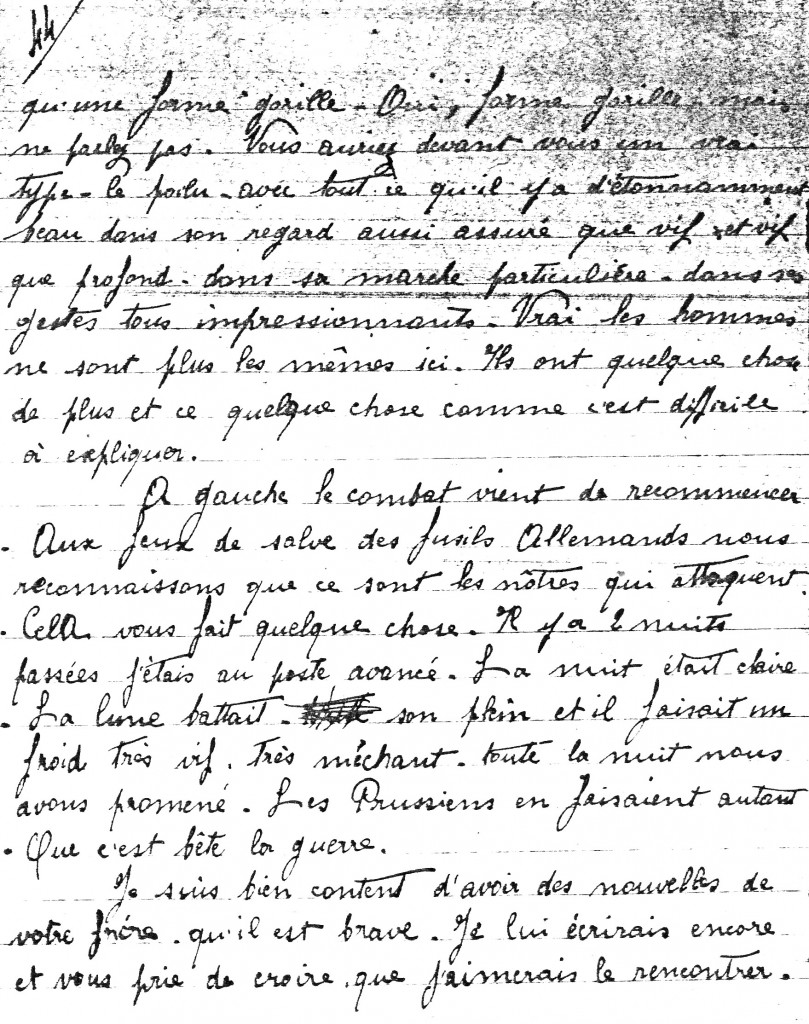 44
qu'une forme "gorille - Oui, forme gorille - mais
ne parlez pas. Vous auriez devant vous un vrai
type - le poilu - avec tout ce qu'il y a d'étonnamment
beau dans son regard aussi assuré que vif, et vif
que profond - dans sa marche particulière - dans ses
gestes tous impressionnants. Vrai les hommes
ne sont plus les mêmes ici. Ils ont quelque chose
de plus et ce quelque chose comme c'est difficile
à expliquer.
A gauche le combat vient de recommencer
. Aux feux de salve des fusils Allemands nous
reconnaissons que ce sont les nôtres qui attaquent.
. Cela vous fait quelque chose. Il y a 2 nuits
passées j'étais au poste avancé. La nuit était claire
. La lune battait son plein et il faisait un
froid très vif. très méchant. toute la nuit nous
avons promené. Les Prussiens en faisaient autant
. Que c'est bête la guerre.
Je suis bien content d'avoir des nouvelles de
votre frère. qu'il est brave. Je lui écrirais encore
et vous prie de croire, que j'aimerais le rencontrer.